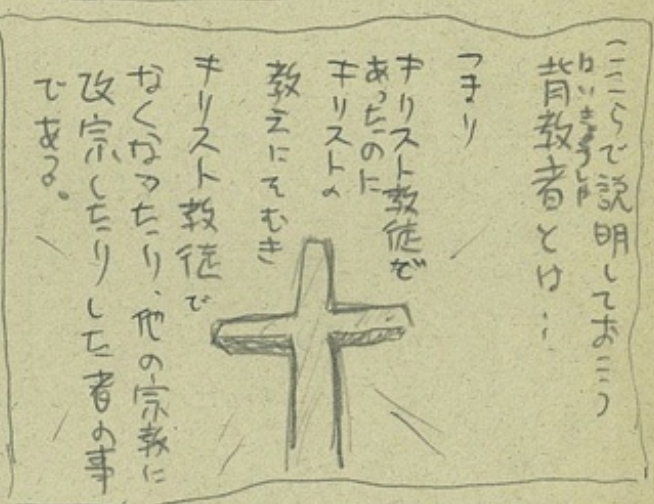 ここらで説明しておこう
はいきょうしゃ
背教者とは…
つまり
キリスト教徒で
あったのに
キリストの
教えにそむき
キリスト教徒で
なくなったり、他の宗教に
改宗したりした者の事
である。